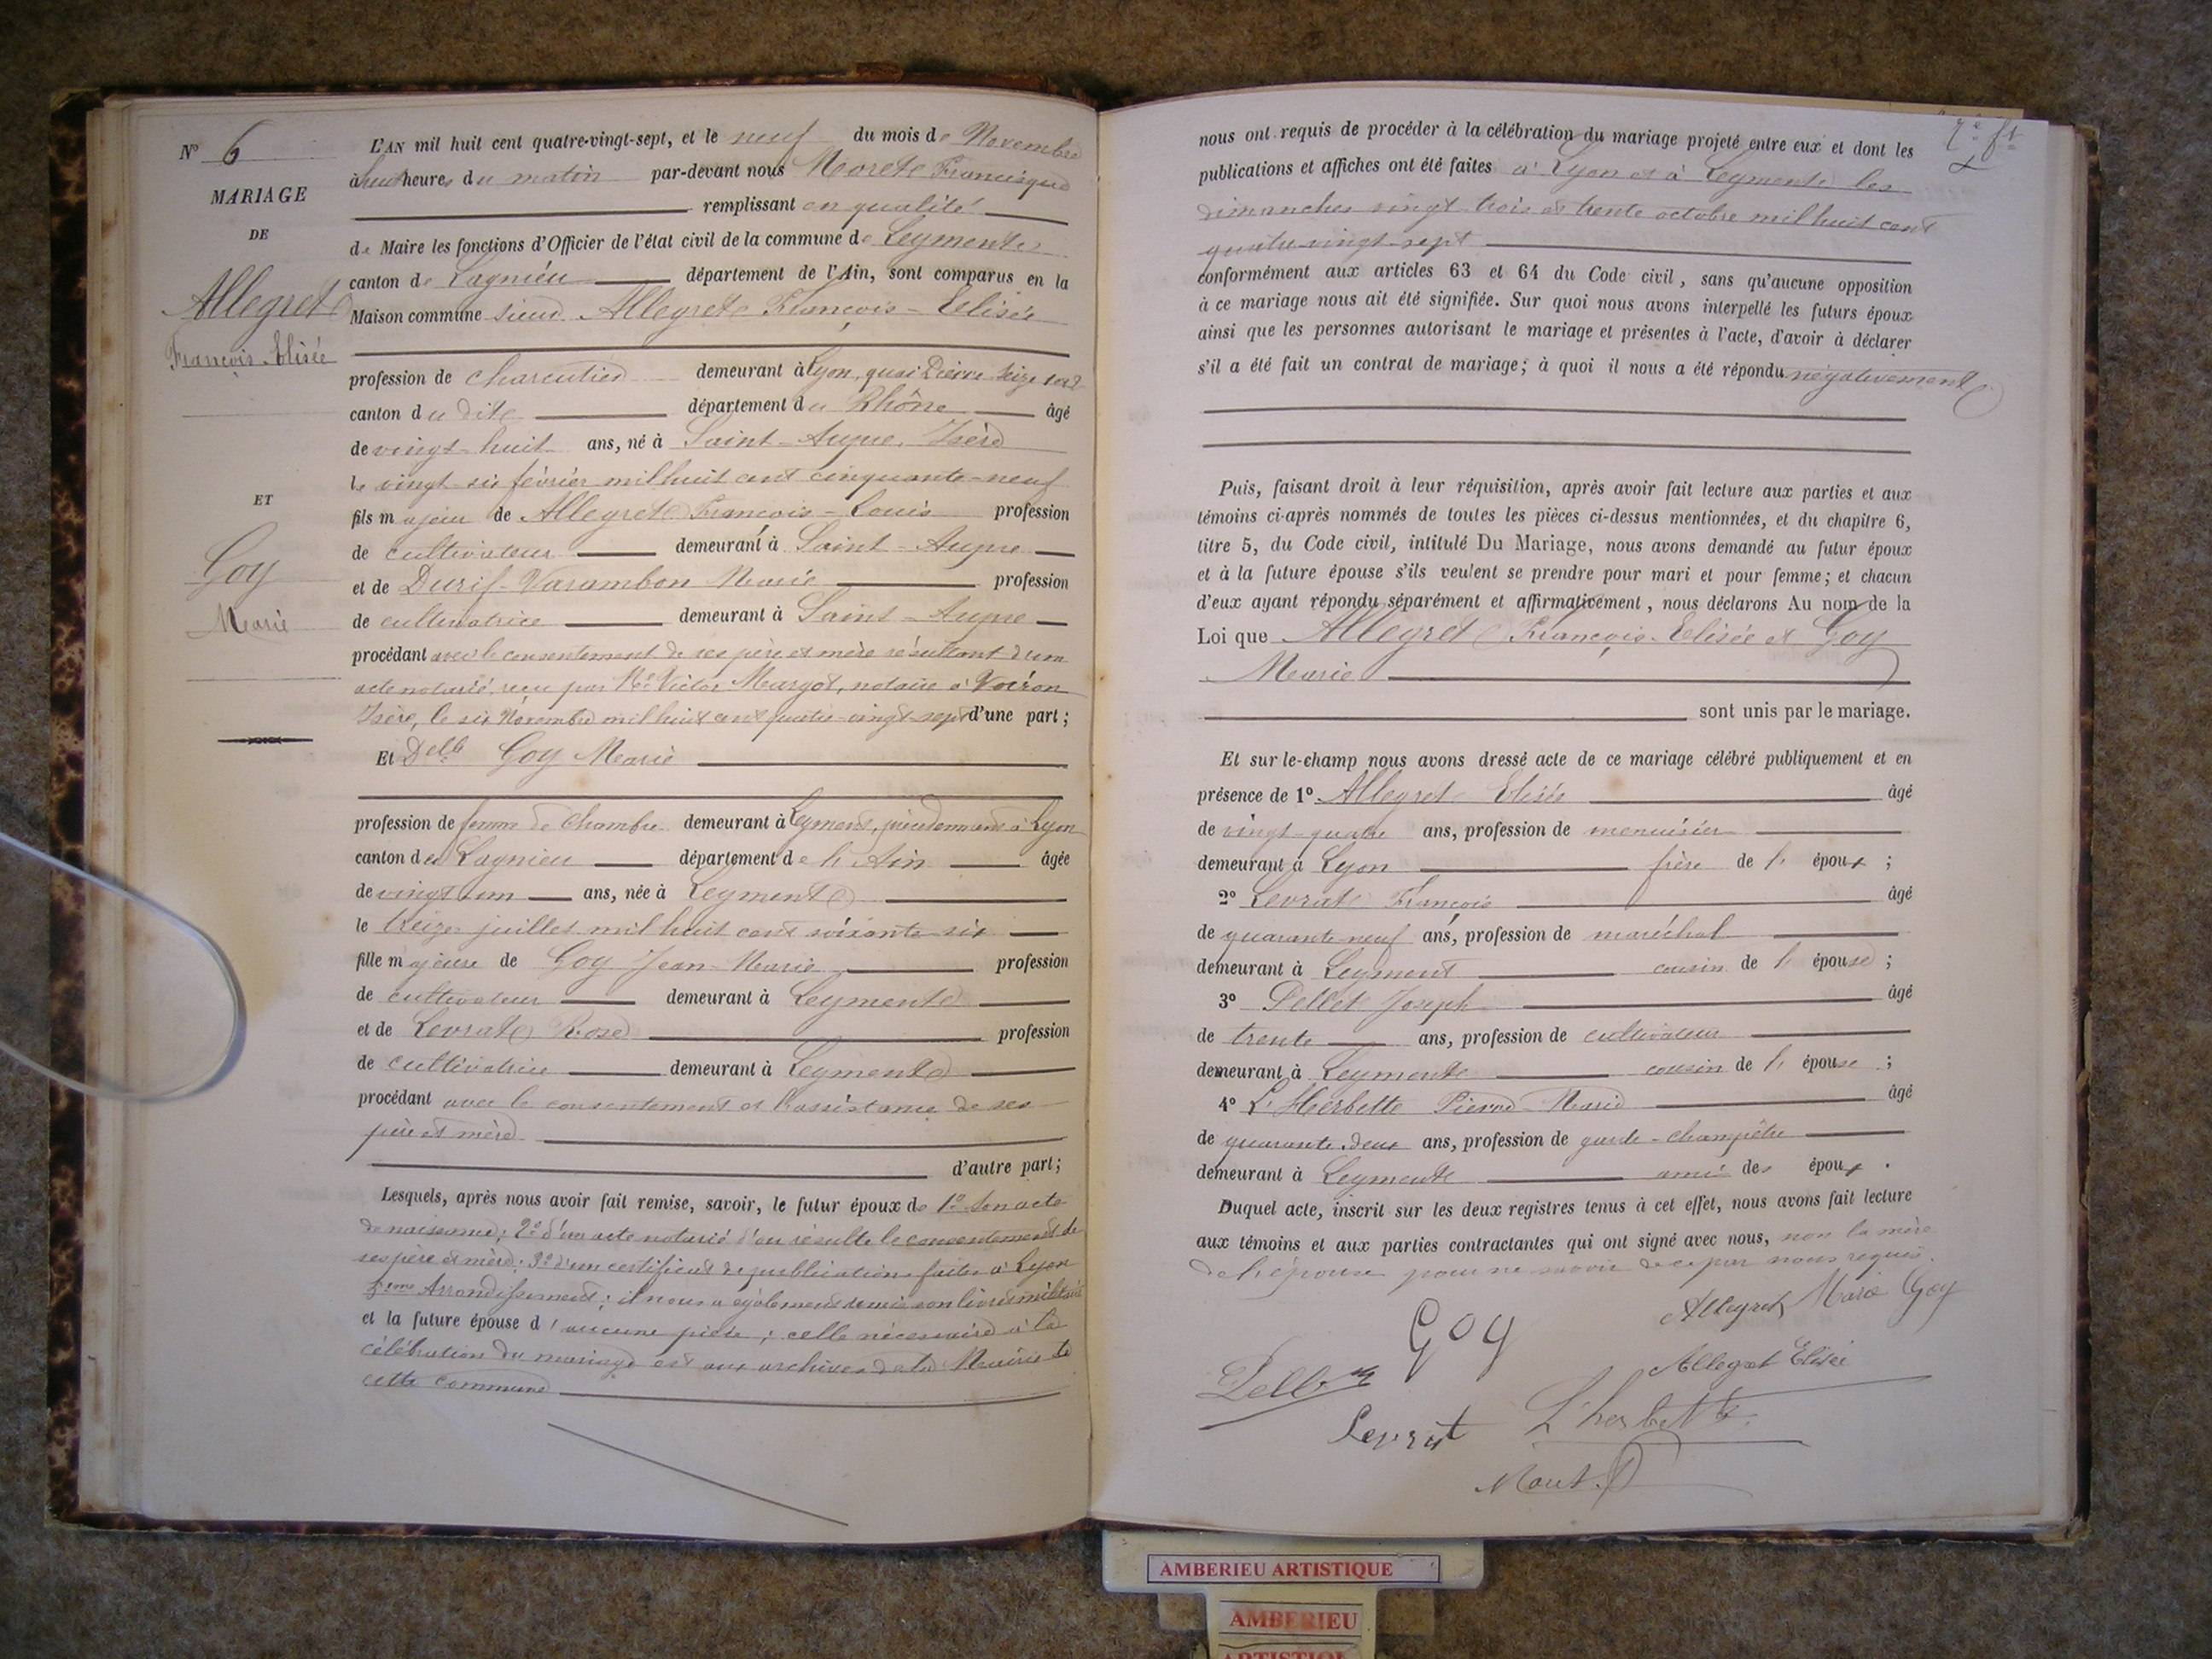 N° 6
MARIAGE
DE
Allegret
François-Elisée
ET
Goy
Marie
L'AN mil huit cent quatre-vingt-sept, et le neuf du mois de Novembre
à huit heures du matin par-devant nous Moret Francisque
remplissant en qualité
de Maire les fonctions d'Officier de l'état civil de la commune de Leyment
canton de Lagnieu département de l'Ain, sont comparus en la
Maison commune sieur Allegret François-Elisée
profession de charcutier demeurant à Lyon, quai Pierre Seize 102
canton du dit département du Rhône âgé
de vingt-huit ans, né à Saint-Aupre, Isère
le vingt-six février mil huit cent cinquante-neuf
fils majeur de Allegret François-Louis profession
de cultivateur demeurant à Saint-Aupre
et de Durif-Varambon Marie profession
de cultivatrice demeurant à Saint-Aupre
procédant avec le consentement de ses père et mère résultant d'un
acte notarié, reçu par Me Victor Margot, notaire à Voiron
Isère, le six Novembre mil huit cent quatre-vingt-sept d'une part ;
Et Delle Goy Marie
profession de femme de chambre demeurant à Leyment, précédemment à Lyon
canton de Lagnieu département de l'Ain âgée
de vingt un ans, née à Leyment
le treize juillet mil huit cent soixante six
fille majeure de Goy Jean-Marie profession
de cultivateur demeurant à Leyment
et de Levrat Rose profession
de cultivatrice demeurant à Leyment
procédant avec le consentement et l'assistance de ses
père et mère
d'autre part ;
Lesquels, après nous avoir fait remise, savoir, le futur époux de 1° Son acte
de naissance ; 2° d'un acte notarié d'où résulte le consentement de
ses père et mère ; 3° d'un certificat de publications faites à Lyon
5eme Arrondissement ; il nous a également remis son livret militaire
et la future épouse d'aucune pièce ; celle nécessaire à la
célébration du mariage est aux archives de la Mairie de
cette commune
7e ft
nous ont requis de procéder à la célébration du mariage projeté entre eux et dont les
publications et affiches ont été faites à Lyon et à Leyment les
dimanches vingt-trois et trente octobre mil huit cent
quatre-vingt-sept
conformément aux articles 63 et 64 du Code civil, sans qu'aucune opposition
à ce mariage nous ait été signifiée. Sur quoi nous avons interpellé les futurs époux
ainsi que les personnes autorisant le mariage et présentes à l'acte, d'avoir à déclarer
s'il a été fait un contrat de mariage ; à quoi il nous a été répondu négativement
Puis, faisant droit à leur réquisition, après avoir fait lecture aux parties et aux
témoins ci-après nommés de toutes les pièces ci-dessus mentionnées, et du chapitre 6,
titre 5, du Code civil, intitulé Du Mariage, nous avons demandé au futur époux
et à la future épouse s'ils veulent se prendre pour mari et pour femme ; et chacun
d'eux ayant répondu séparément et affirmativement, nous déclarons Au nom de la
Loi que Allegret François-Elisée et Goy
Marie
sont unis par le mariage.
Et sur-le-champ nous avons dressé acte de ce mariage célébré publiquement et en
présence de 1° Allegret Elisée âgé
de vingt-quatre ans, profession de menuisier
demeurant à Lyon frère de l'époux ;
2° Levrat François âgé
de quarante-neuf ans, profession de maréchal
demeurant à Leyment cousin de l'épouse ;
3° Pellet Joseph âgé
de trente ans, profession de cultivateur
demeurant à Leyment cousin de l'épouse ;
4° L'Herbette Pierre-Marie âgé
de quarante-deux ans, profession de garde-champêtre
demeurant à Leyment ami des époux.
Duquel acte, inscrit sur les deux registres tenus à cet effet, nous avons fait lecture
aux témoins et aux parties contractantes qui ont signé avec nous, non la mère
de l'épouse pour ne savoir de ce par nous requis.
Allegret Marie Goy
Goy
Allegret Elisée
Levrat L'herbette
AMBERIEU ARTISTIQUE
AMBERIEU
ARTISTIQUE